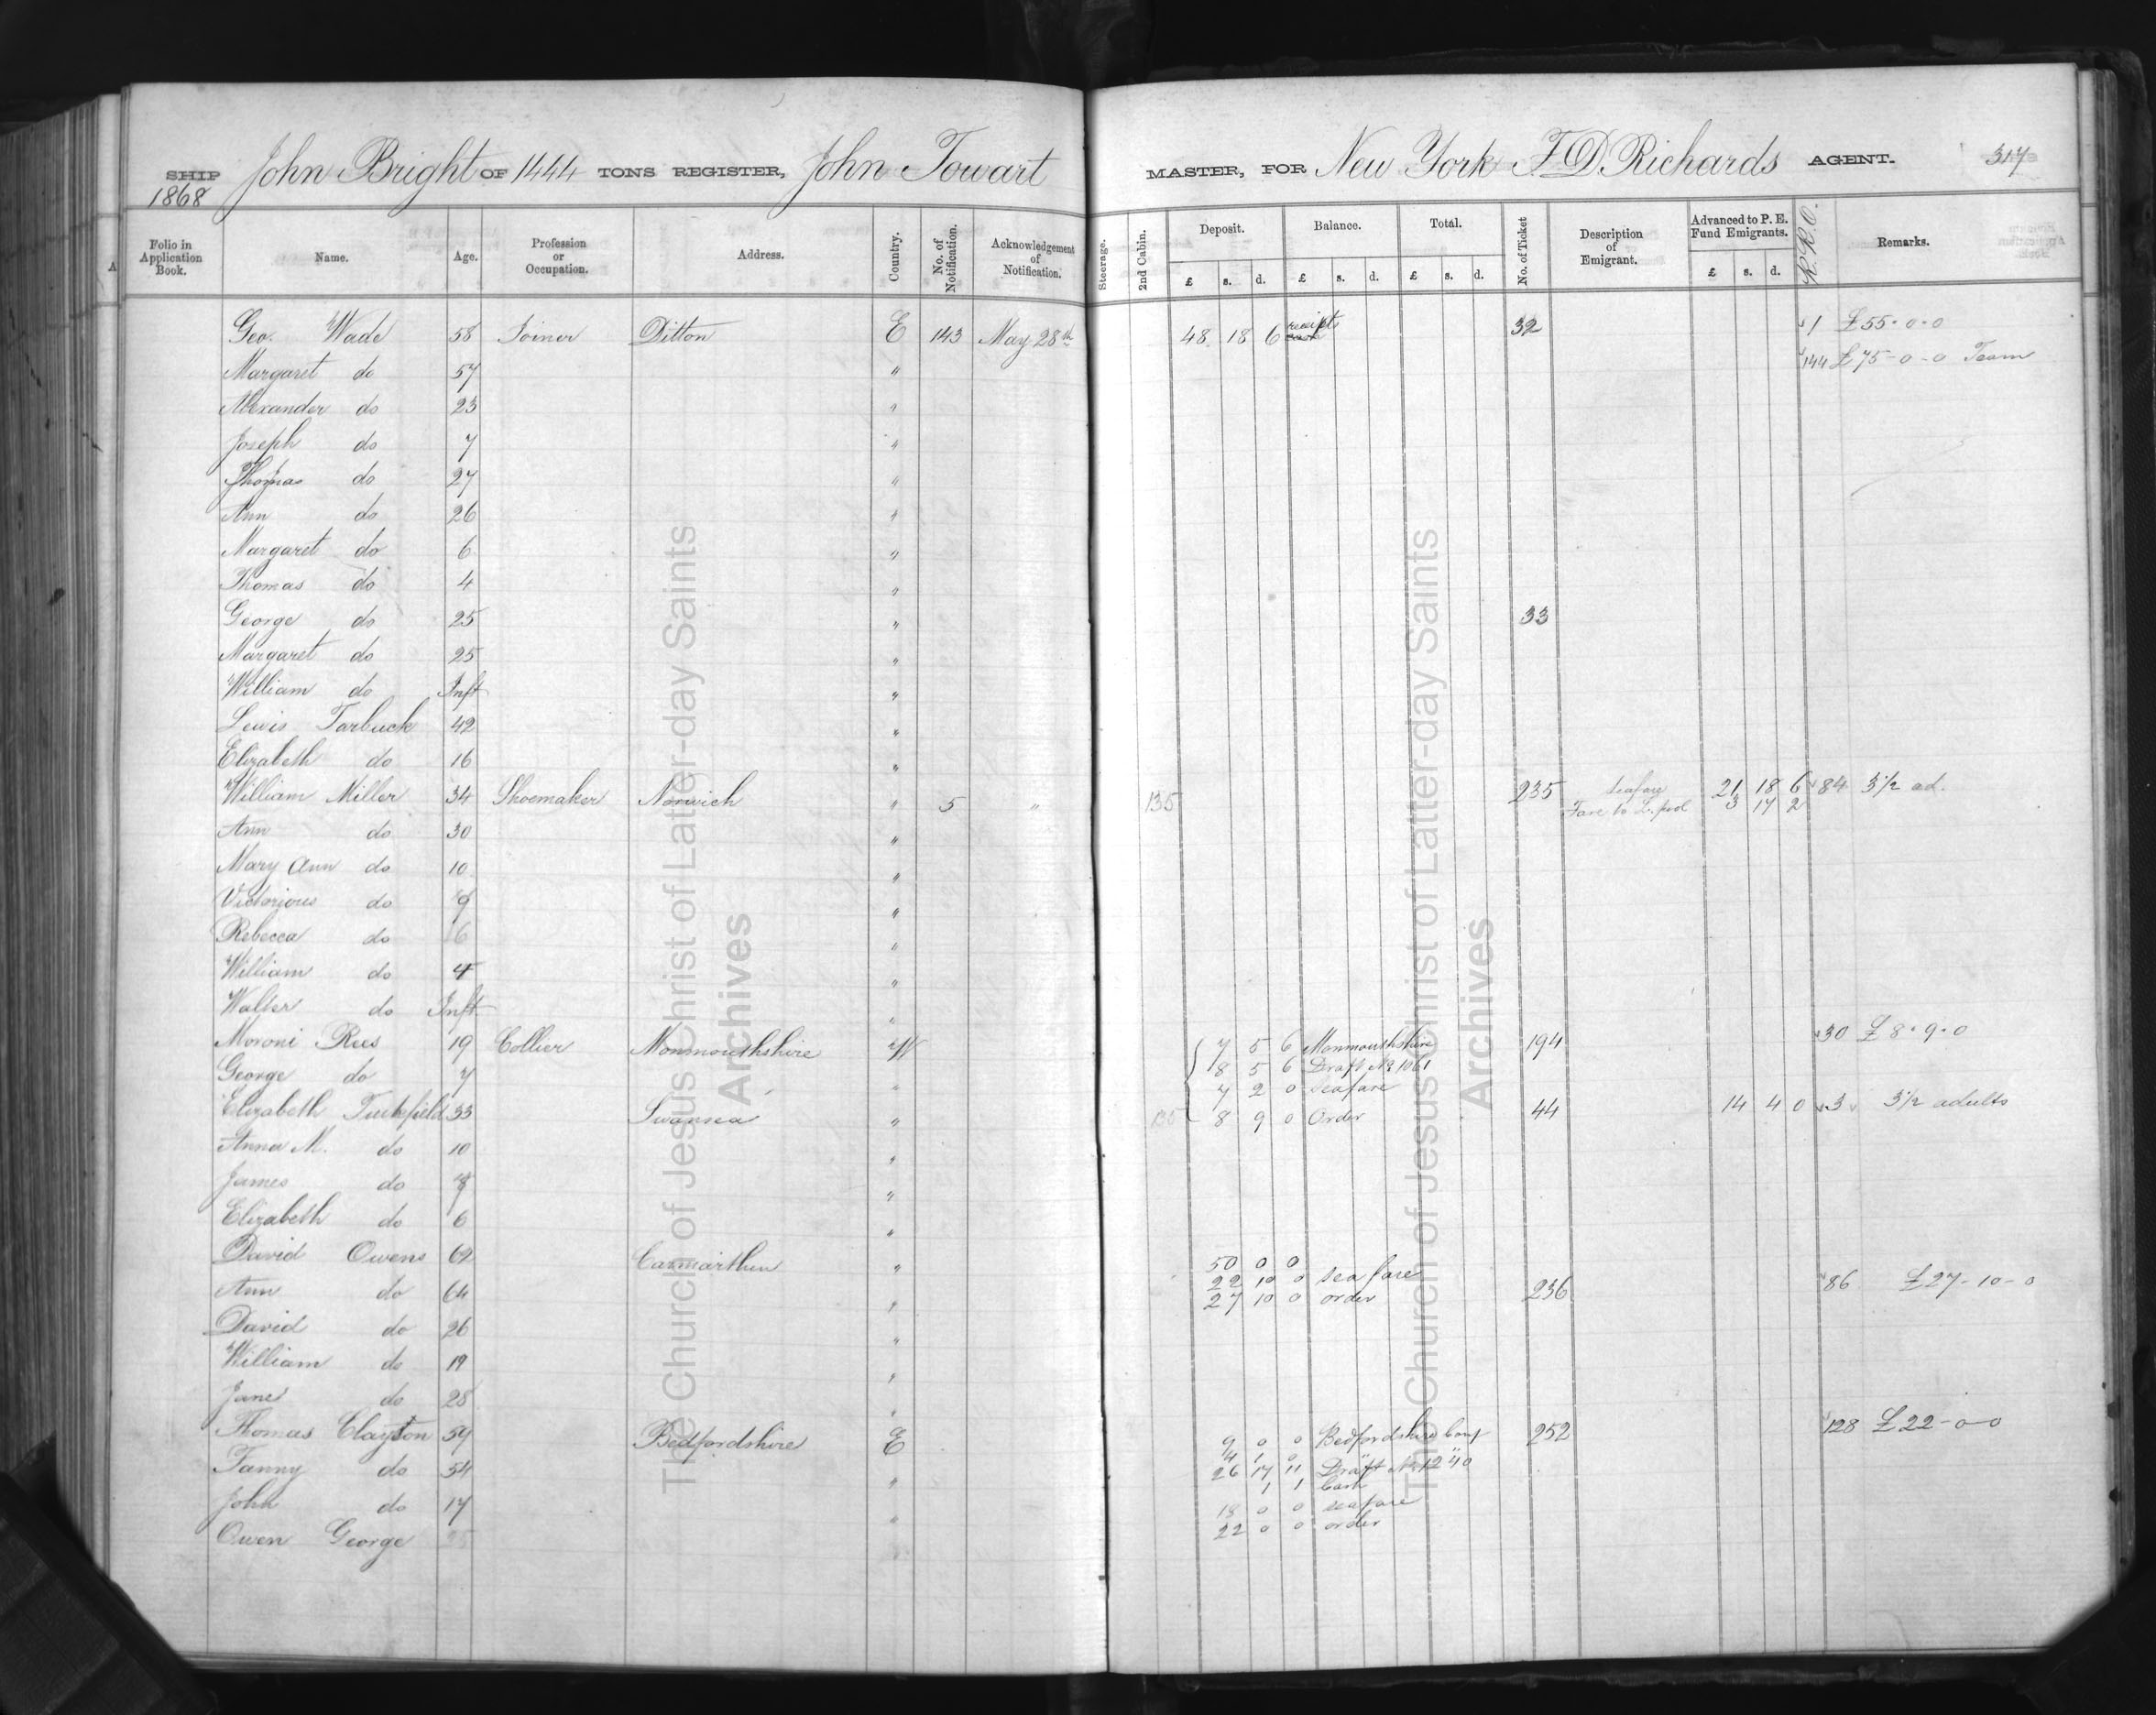 SHIP John Bright OF 1444 TONS REGISTER, John Towart MASTER, FOR New York F. D. Richards AGENT. 317
1868
Folio in Application Book. Name. Age. Profession or Occupation. Address. Country. No. of Notification. Acknowledgement of Notification. Steerage. 2nd Cabin. Deposit. Balance. Total. No. of Ticket Description of Emigrant. Advanced to P. E. Fund Emigrants. R.R.O. Remarks.
£ s. d. £ s. d. £ s. d. £ s. d.
Geo. Wade 58 Joiner Ditton E 143 May 28th 48 18 6 receipt 32 1 £55-0-0
Margaret do 57 " 144 £75-0-0 Team
Alexander do 23 "
Joseph do 7 "
Thomas do 27 "
Ann do 26 "
Margaret do 6 "
Thomas do 4 "
George do 25 " 33
Margaret do 25 "
William do Inft "
Lewis Tarbuck 42 "
Elizabeth do 16 "
William Miller 34 Shoemaker Norwich " 5 " 135 235 seafare 21 18 6 84 3 1/2 ad.
Fare to L.pool 3 17 2
Ann do 30 "
Mary Ann do 10 "
Victorious do 9 "
Rebecca do 6 "
William do 4 "
Walter do Inft "
Moroni Rees 19 Collier Monmouthshire W 7 5 6 Monmouthshire 194 30 £8-9-0
8 5 6 Draft No 1061
George do 7 " 7 2 0 seafare
Elizabeth Tuckfield 33 Swansea " 135 8 9 0 Order 44 14 4 0 3 3 1/2 adults
Anna M. do 10 "
James do "
Elizabeth do 6 "
David Owens 62 Carmarthen " 50 0 0
22 10 0 sea fare
Ann do 64 " 27 10 0 order 236 86 £27-10-0
David do 26 "
William do 19 "
Jane do 28 "
Thomas Clayton 59 Bedfordshire E 9 0 0 Bedfordshire Conf 252 128 £22-0-0
4 1 0 " "
Fanny do 54 " 26 17 11 Draft No 1240
1 1 Cash
John do 17 " 18 0 0 seafare
22 0 0 order
Owen George
The Church of Jesus Christ of Latter-day Saints
Archives
The Church of Jesus Christ of Latter-day Saints
Archives